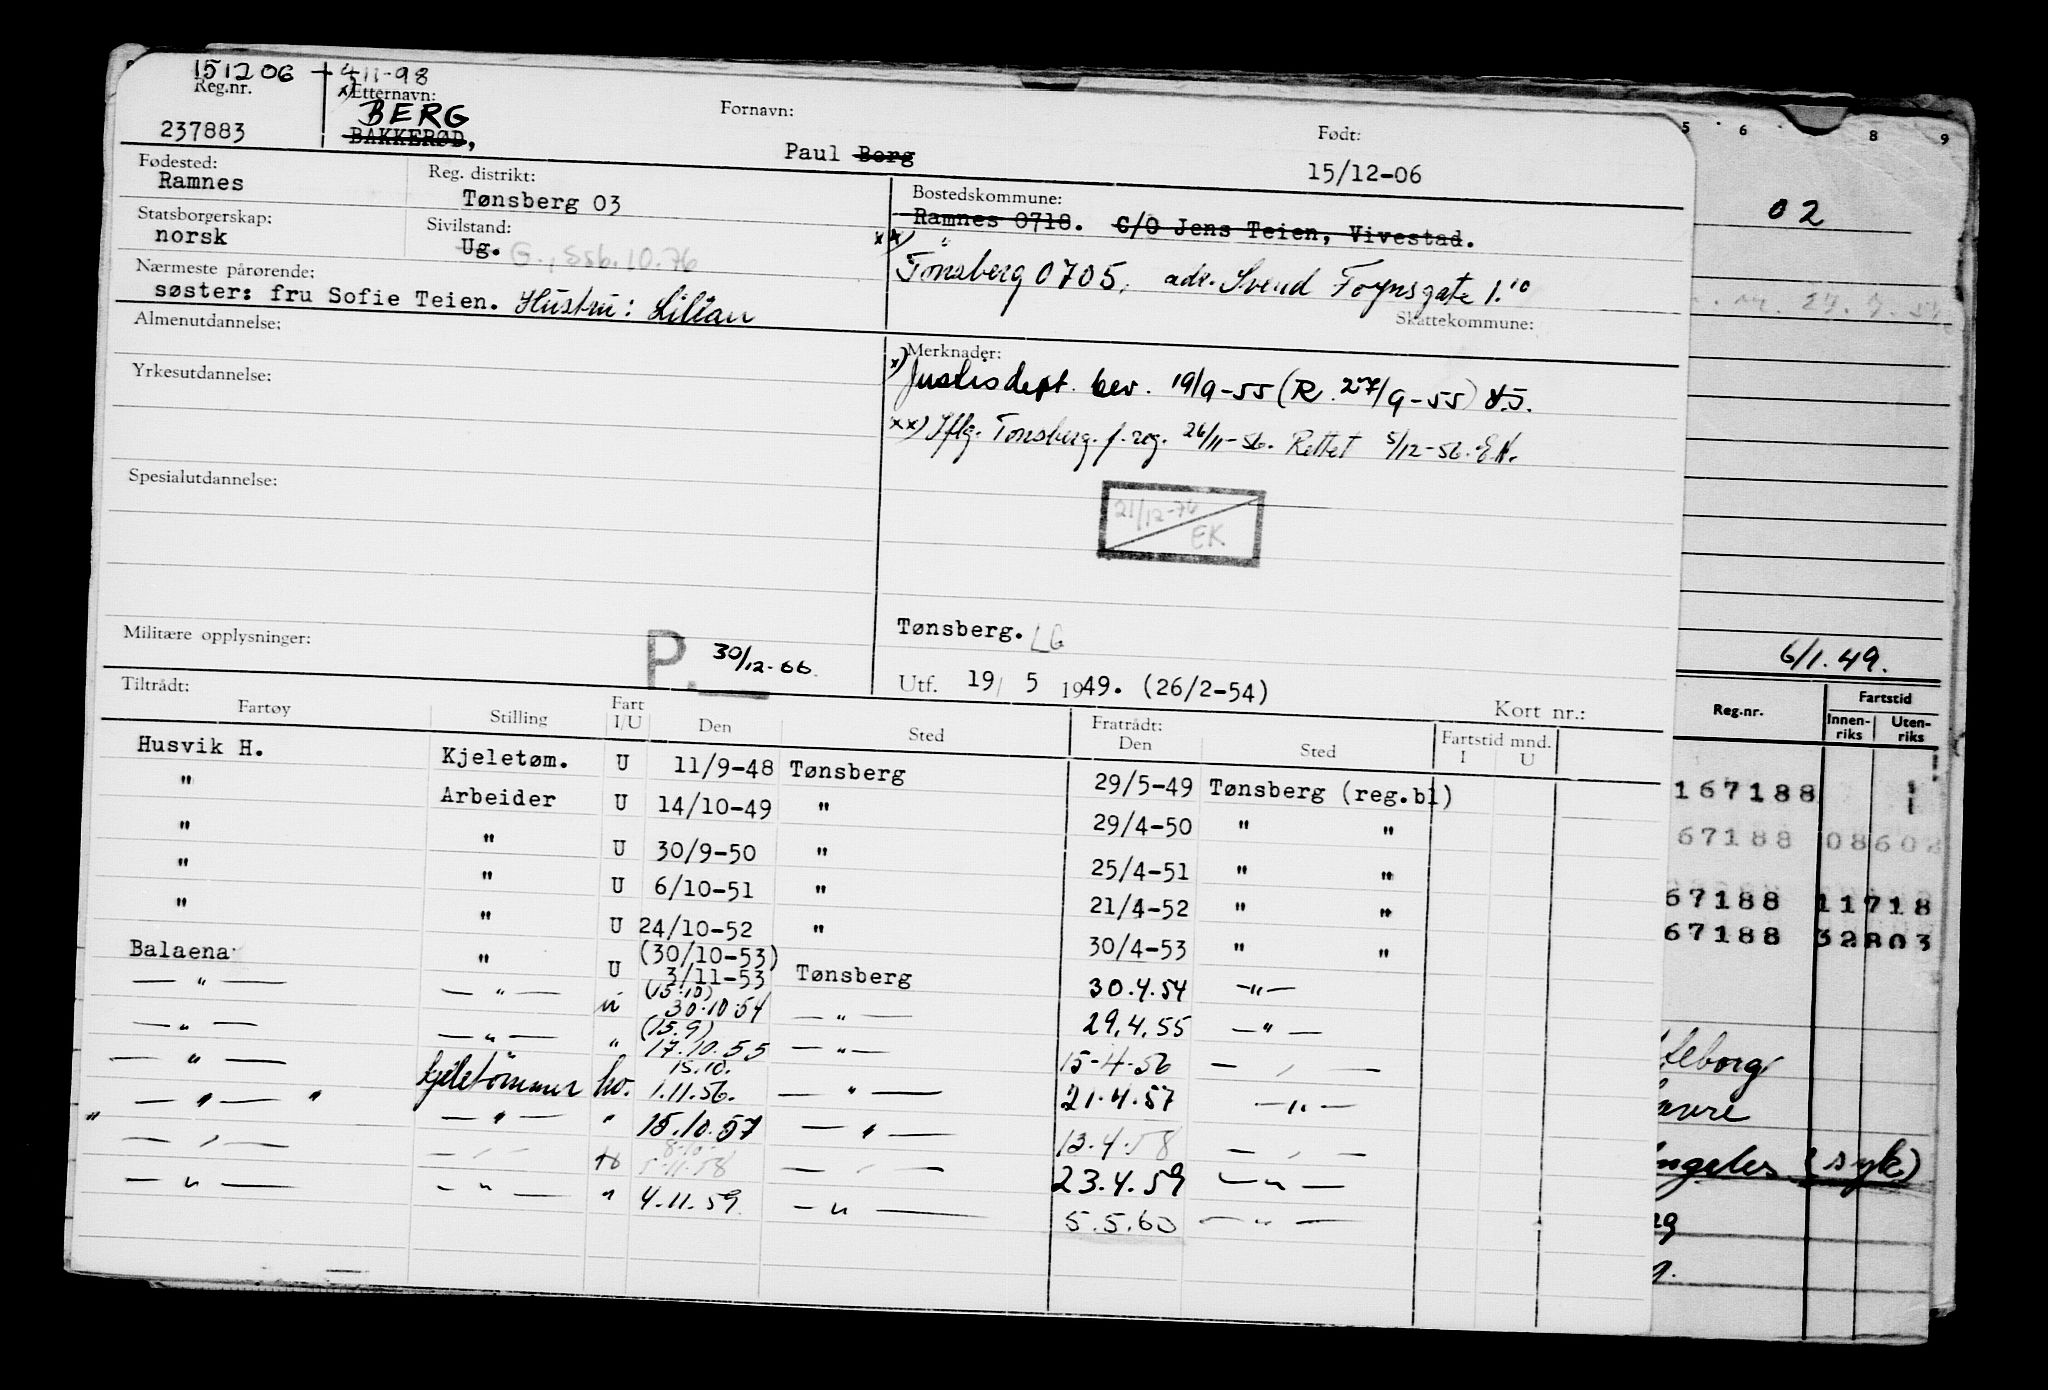 151206 + 4/11-98
Reg.nr. x) Etternavn: Fornavn: Født:
BERG
237883 BAKKERØD, Paul Berg 15/12-06
Fødested: Reg. distrikt: Bostedskommune:
Ramnes Tønsberg 03 Ramnes 0718. C/O Jens Teien, Vivestad.
Statsborgerskap: Sivilstand:
norsk Ug. G., Ssb. 10.76 xx) Tønsberg 0705, adr. Svend Foynsgate 1.10
Nærmeste pårørende: Skattekommune:
søster: fru Sofie Teien. Hustru: Lillan
Almenutdannelse: Merknader:
x) Justisdept. bev. 19/9-55 (R. 27/9-55)
Yrkesutdannelse:
xx) Iflg. Tønsberg f.reg. 26/11-56. Rettet 5/12-56. E.K.
Spesialutdannelse:
21/12-76
EK
Militære opplysninger: P. 30/12-66. Tønsberg. LG
Utf. 19/ 5 1949. (26/2-54)
Kort nr.:
Tiltrådt: Fratrådt:
Fartøy Stilling Fart I/U Den Sted Den Sted Fartstid mnd. I U
Husvik H. Kjeletøm. U 11/9-48 Tønsberg 29/5-49 Tønsberg (reg.bl)
" Arbeider U 14/10-49 " 29/4-50 " "
" " U 30/9-50 " 25/4-51 " "
" " U 6/10-51 " 21/4-52 " "
" " U 24/10-52 " 30/4-53 " "
Balaena " U (30/10-53) 3/11-53 Tønsberg 30.4.54 — " —
— " — — " — U (15.10) 30.10.54 — " — 29.4.55 — " —
— " — — " — " (15.9) 17.10.55 — " — 15-4-56 — " —
— " — kjeletømmer ho. 15.10. 1.11.56. — " — 21.4.57 — " —
— " — " — " — " 15.10.57 — " — 13.4.58 — " —
" — " — — " — 8.10. 5.11.58 — " — 23.4.59 — " —
— " — — " — " 4.11.59 — " — 5.5.60 — " —
5 6 8 9
02
6/1.49.
Reg.nr. Fartstid
Innen-riks Uten-riks
167188
67188 08602
67188 11718
67188 32803
(syk)